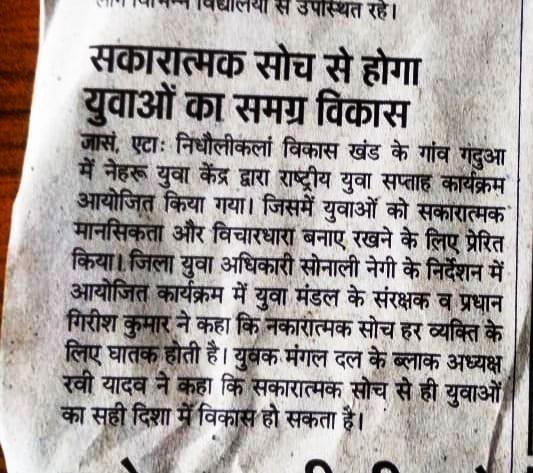 विद्यालयों से उपस्थित रहे।
सकारात्मक सोच से होगा
युवाओं का समग्र विकास
जासं, एटा: निधौलीकलां विकास खंड के गांव गदुआ
में नेहरू युवा केंद्र द्वारा राष्ट्रीय युवा सप्ताह कार्यक्रम
आयोजित किया गया। जिसमें युवाओं को सकारात्मक
मानसिकता और विचारधारा बनाए रखने के लिए प्रेरित
किया। जिला युवा अधिकारी सोनाली नेगी के निर्देशन में
आयोजित कार्यक्रम में युवा मंडल के संरक्षक व प्रधान
गिरीश कुमार ने कहा कि नकारात्मक सोच हर व्यक्ति के
लिए घातक होती है। युवक मंगल दल के ब्लाक अध्यक्ष
रवी यादव ने कहा कि सकारात्मक सोच से ही युवाओं
का सही दिशा में विकास हो सकता है।